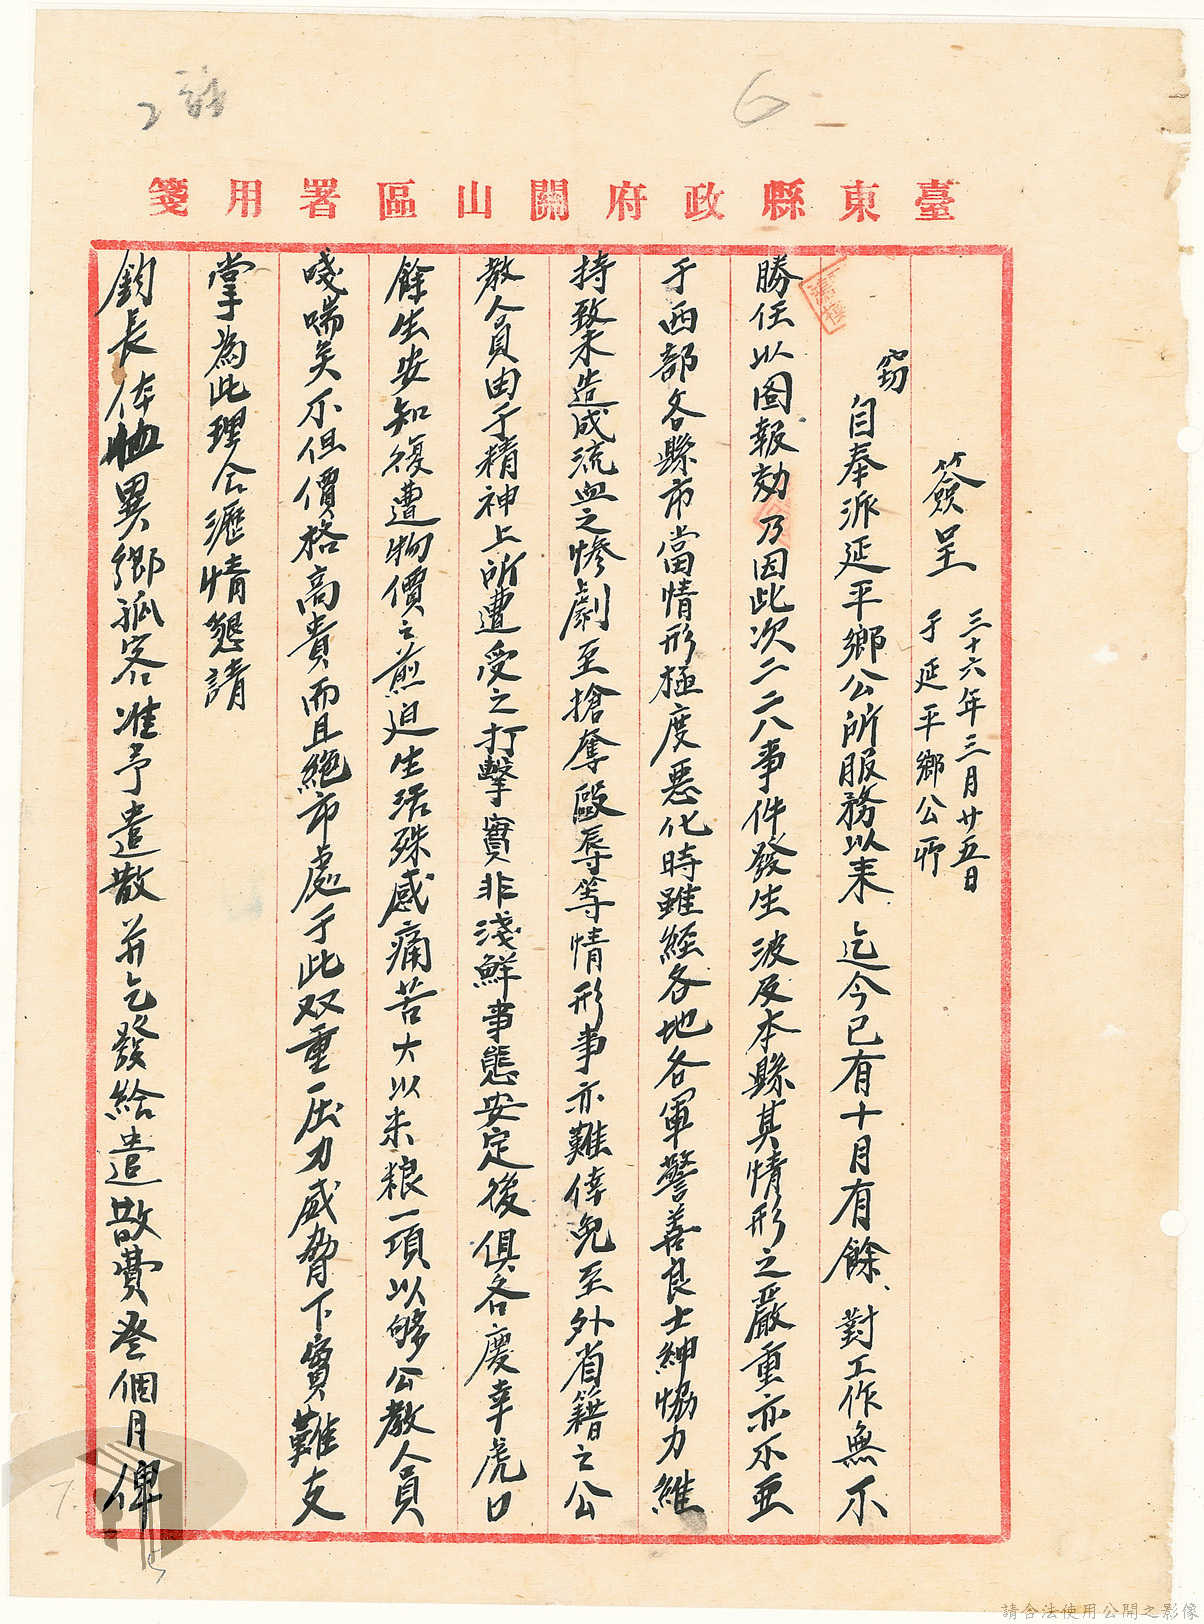 臺東縣政府關山區署用箋
簽呈 三十六年三月廿五日
于延平鄉公所
竊自奉派延平鄉公所服務以來迄今已有十月有餘、對工作無不
勝任以圖報効乃因此次二二八事件發生波及本縣其情形之嚴重亦不亞
于西部各縣市當情形極度惡化時雖經各地各軍警善良士紳協力維
持致未造成流血之慘劇至搶奪毆辱等情形事亦難倖免至外省籍之公
教人員由于精神上所遭受之打擊實非淺鮮事態安定後俱各慶幸虎口
餘生安知復遭物價之煎迫生活殊感痛苦大以米粮一項以够公教人員
嘆喘矣不但價格高貴而且絕市處于此双重压力威脅下實難支
掌為此理合瀝情懇請
鈞長体恤異鄉孤客准予遣散并乞發給遣散費叁個月俾
請合法使用公開之影像